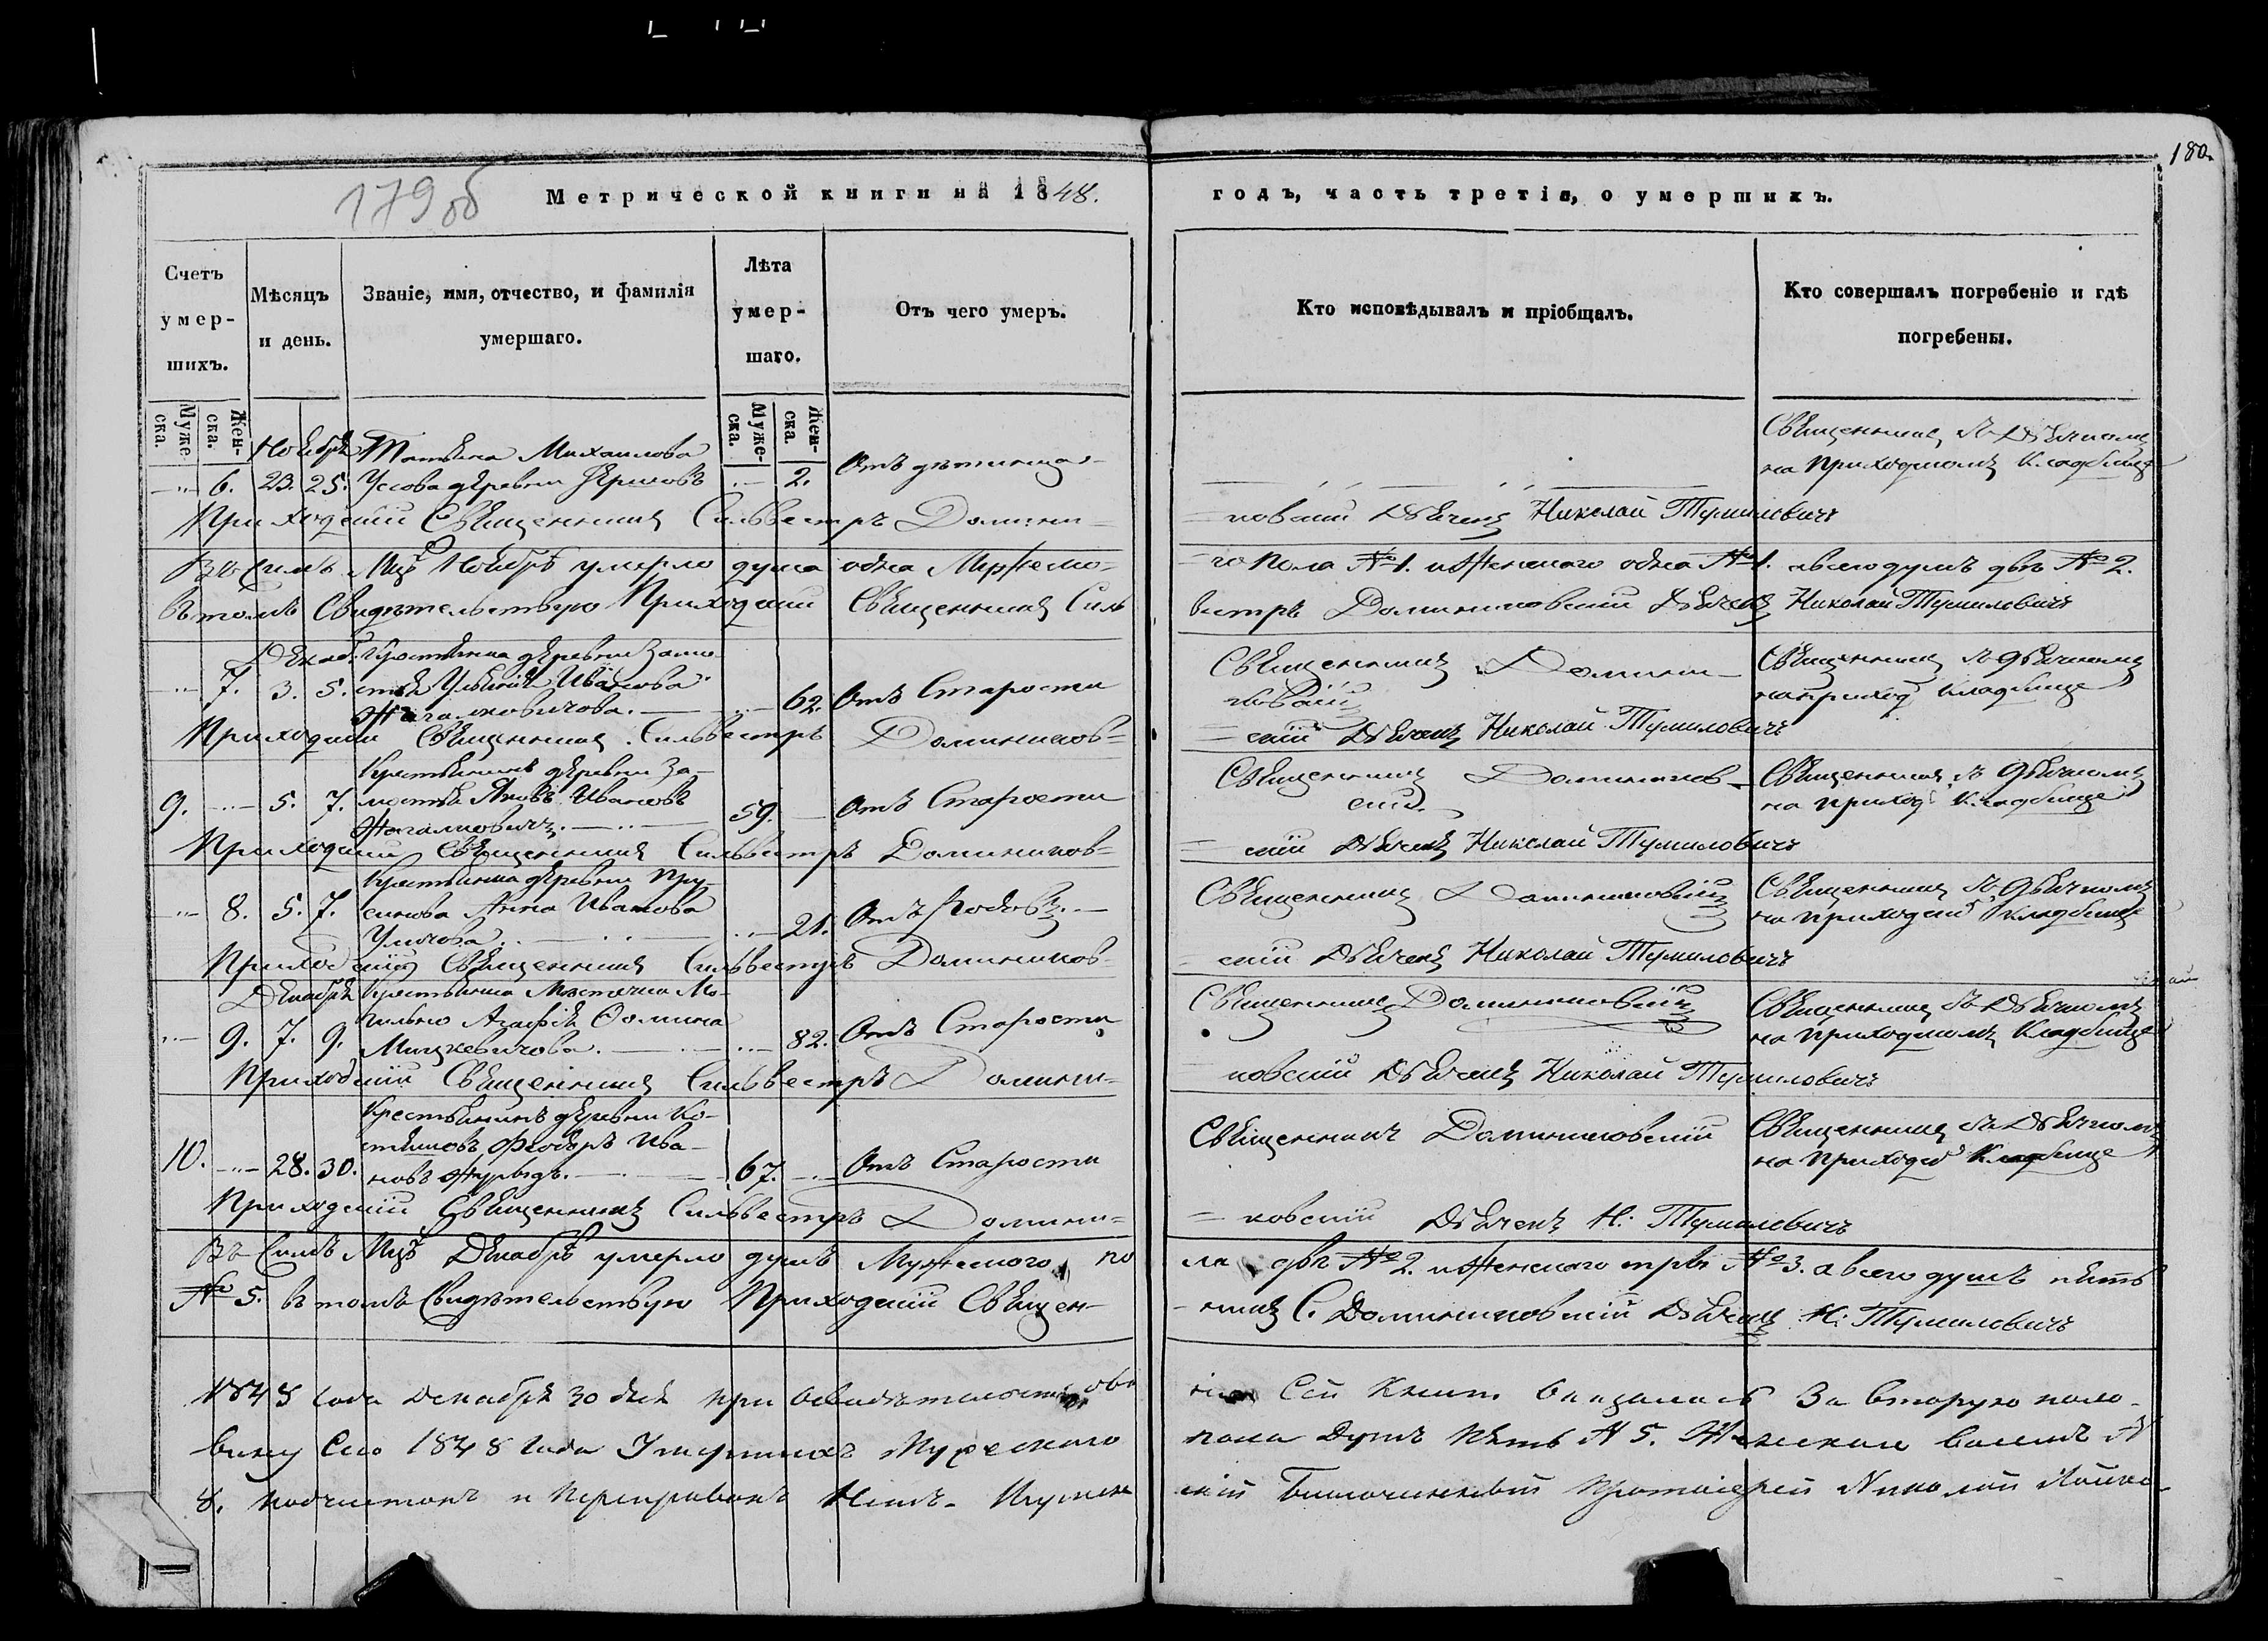 180.
179 об
Метрической книги на 1848.
годъ, часть третія, о умершихъ.
Счетъ умер-шихъ.
Мѣсяцъ и день.
Званіе, имя, отчество, и фамилія умершаго.
Лѣта умер-шаго.
Отъ чего умеръ.
Кто исповѣдывалъ и пріобщалъ.
Кто совершалъ погребеніе и гдѣ погребены.
Муже ска.
Жен-ска.
Муже-ска.
Жен-ска.
Ноября Татьяна Михаилова
Усова деревни
6. 23. 25. 2. Отъ
Священникъ съ Дьячкомъ
на Приходскомъ Кладбище
Приходскій Священникъ Сильвестръ Домини-
=ковскій Дьячекъ Николай Тумиловичъ
Въ Семъ Мцѣ Ноябрѣ умерло душа одна Мужеско-
=го Пола № 1. и Женского одна № 1. а всего душъ двѣ № 2.
Въ томъ Свидѣтельствую Приходскій Священникъ Силь
вестръ Доминиковскій Дьячекъ Николай Тумиловичъ
Декаб. Крестьянка деревни Замо-
стья Ульянія Иванова
7. 3. 5. 62. Отъ Старости
Священникъ Домини-
ковскій
Священникъ съ дьячкомъ
на приход Кладбище
Приходскій Священникъ Сильвестръ Домиников=
=скій Дьячекъ Николай Тумиловичъ
Крестьянинъ деревни За-
мостья Яковъ Ивановъ
9. 5. 7. 59. Отъ Старости
Священникъ Домиников-
скій
Священникъ съ дьячкомъ
на приход Кладбище
Приходскій Священникъ Сильвестръ Домиников=
=скій Дьячекъ Николай Тумиловичъ
Крестьянка деревни Пру-
синова Анна Иванова
8. 5. 7. 21. Отъ Родовъ
Священникъ Доминиковскій
Священникъ съ дьячкомъ
на приходск Кладбище
Приходскій Священникъ Сильвестръ Домиников=
скій Дьячекъ Николай Тумиловичъ
Декабря Крестьянка Мѣстечка Мо-
гильно Агафія Фомина
Мицкевичова.
9. 7. 9. 82. Отъ Старости
Священникъ Доминиковскій
Священникъ съ Дьячкомъ
на Приходскомъ Кладбище
Приходскій Священникъ Сильвестръ Домини=
ковскій Дьячекъ Николай Тумиловичъ
Крестьянинъ деревни Ко-
Феодоръ Ива-
новъ
10. 28. 30. 67. Отъ Старости
Священникъ Доминиковскій
Священникъ съ Дьячкомъ
на Приходск Кладбище
Приходскій Священникъ Сильвестръ Домини=
=ковскій Дьячекъ Н: Тумиловичъ
Въ Семъ Мцѣ Декабрѣ умерло душъ Мужеского по
ла двѣ № 2. и Женского три № 3. а всего душъ пять
№ 5. въ томъ Свидѣтельствую Приходскій Священ-
-никъ С. Доминиковскій Дьячекъ Н: Тумиловичъ
1848 года Декабря 30 дня при Освидѣтельствова
ніи Сей Книги Оказалось За вторую поло-
вину Сего 1848 Года Умершихъ Мужеского
пола Душъ Пять № 5. Женского восемь №
8.
Благочинный Протоіерей Николай